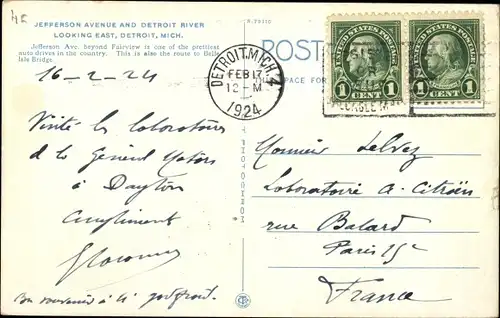 JEFFERSON AVENUE AND DETROIT RIVER
LOOKING EAST, DETROIT, MICH.
Jefferson Ave. beyond Fairview is one of the prettiest
auto drives in the country. This is also the route to Belle
Isle Bridge.
16-2-24
Visité les laboratoires
de la General Motors
à Dayton
Compliments
Bon souvenir à
POST
PACE FOR
DETROIT, MICH.
FEB 17
12-M
1924
UNITED STATES POSTAGE
1 CENT 1
UNITED STATES POSTAGE
1 CENT 1
Monsieur
Laboratoire A. Citroën
rue Balard
Paris 15e
France